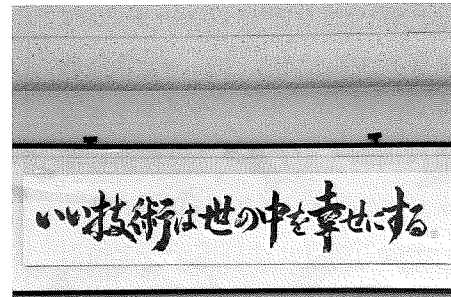 いい技術は世の中を幸せにする。